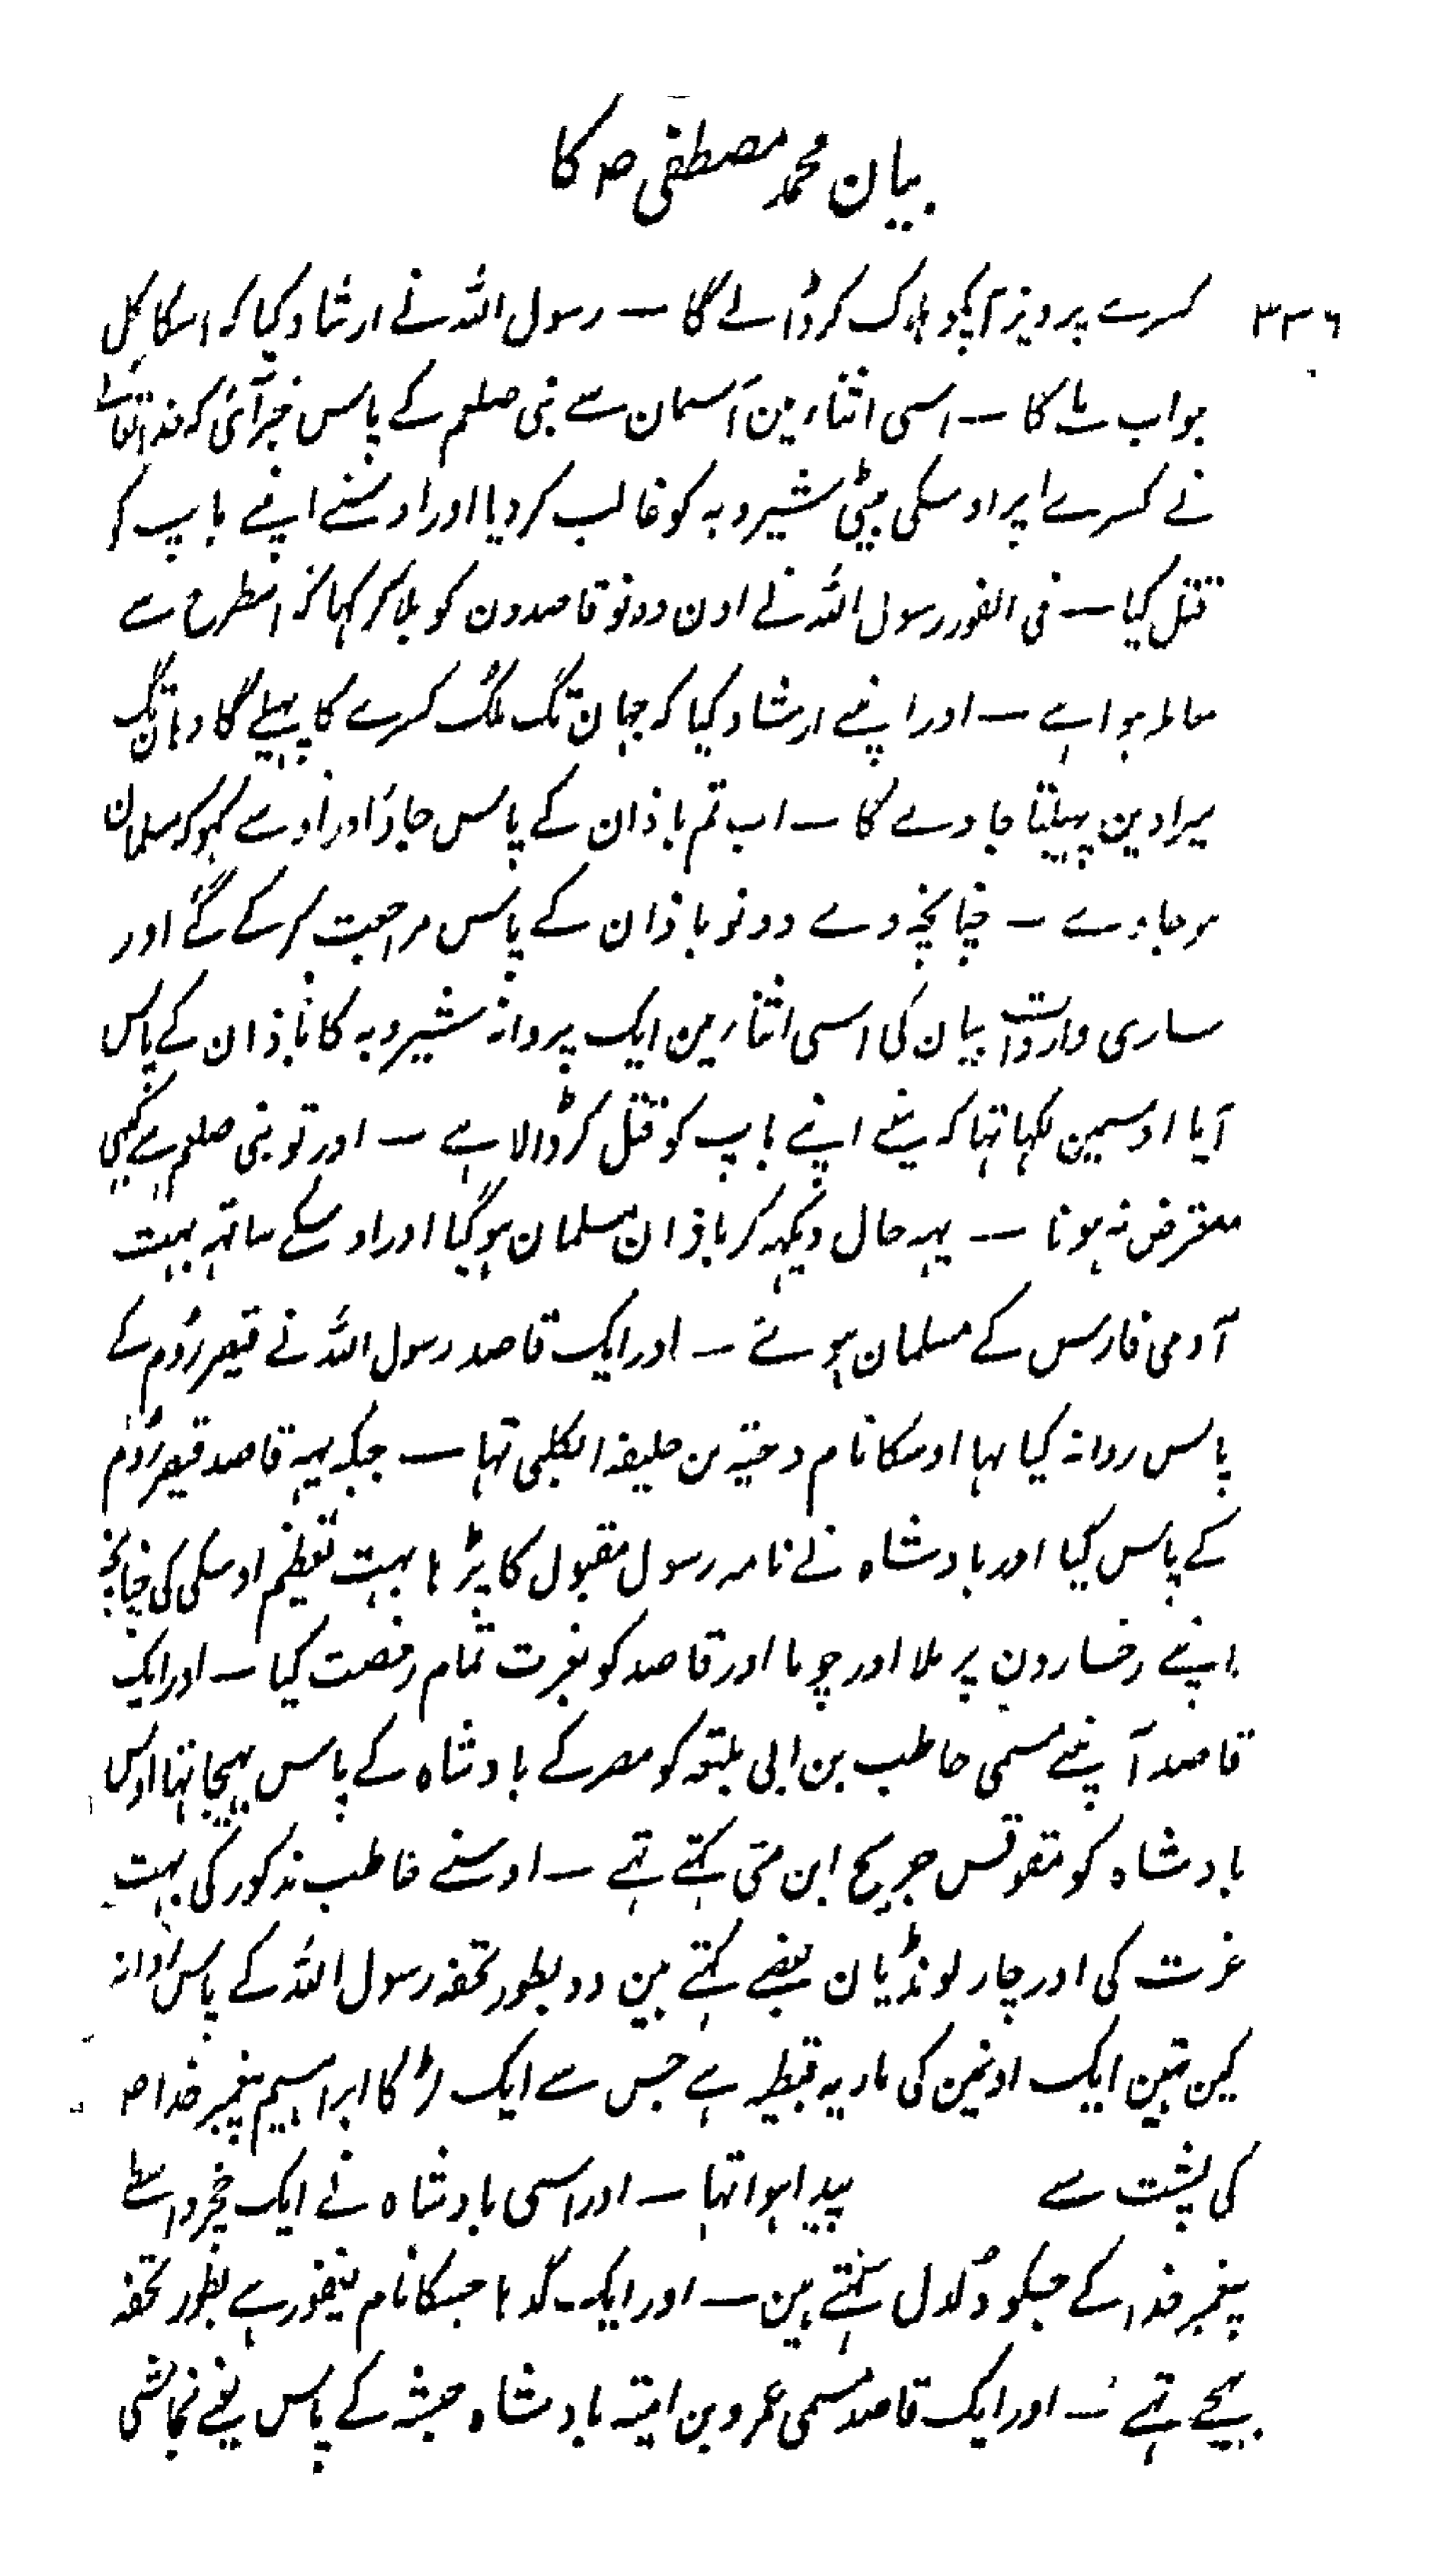 بیان محمد مصطفی ص کا
۳۳۶
کسرے پرویز آپکو ہلاک کر ڈالے گا — رسول اللہ نے ارشاد کیا کہ اسکا کل
جواب ملے گا — اسی اثناء مین آسمان سے نبی صلعم کے پاس خبر آئی کہ خدا تعالے
نے کسرے اپر اوسکی بیٹی شیرویہ کو غالب کر دیا اور اوسنے اپنے باپ کو
قتل کیا — فی الفور رسول اللہ نے اون دونو قاصدون کو بلا کر کہا کہ اسطرح سے
معاملہ ہوا ہے — اور اپنے ارشاد کیا کہ جہان تک ملک کسرے کا پہیلے گا وہان تک
میرا دین پہیلتا جاوے گا — اب تم باذان کے پاس جاؤ اور اوسے کہو کہ مسلمان
ہو جاوے — چنانچہ وے دونو باذان کے پاس مراجعت کر کے گئے اور
ساری واردات بیان کی اسی اثناء مین ایک پروانہ شیرویہ کا باذان کے پاس
آیا اوسمین لکہا تہا کہ مینے اپنے باپ کو قتل کر ڈالا ہے — اور تو نبی صلعم سے کبہی
معترض نہ ہونا — یہہ حال دیکہہ کر باذان مسلمان ہو گیا اور اوسکے ساتہہ بہت
آدمی فارس کے مسلمان ہوئے — اور ایک قاصد رسول اللہ نے قیصر روم کے
پاس روانہ کیا تہا اوسکا نام دحیہ بن خلیفہ الکلبی تہا — جبکہ یہہ قاصد قیصر روم
کے پاس گیا اور بادشاہ نے نامہ رسول مقبول کا پڑہا بہت تعظیم اوسکی کی چنانچہ
اپنے رخسارون پر ملا اور چوما اور قاصد کو بعزت تمام رخصت کیا — اور ایک
قاصد آپنے مسمی حاطب بن ابی بلتعہ کو مصر کے بادشاہ کے پاس بہیجا تہا اوس
بادشاہ کو مقوقس جریح ابن متی کہتے تہے — اوسنے حاطب مذکور کی بہت
عزت کی اور چار لونڈیان بعضے کہتے ہین دو بطور تحفہ رسول اللہ کے پاس روانہ
کین تہین ایک اونمین کی ماریہ قبطیہ ہے جس سے ایک لڑکا ابراہیم پیغمبر خدا ص
کی پشت سے پیدا ہوا تہا — اور اسی بادشاہ نے ایک خچر واسطے
پیغمبر خدا کے جسکو دلدل کہتے ہین — اور ایک گدہا جسکا نام یعفور ہے بطور تحفہ
بہیجے تہے — اور ایک قاصد مسمی عمرو بن امیہ بادشاہ حبشہ کے پاس یعنے نجاشی